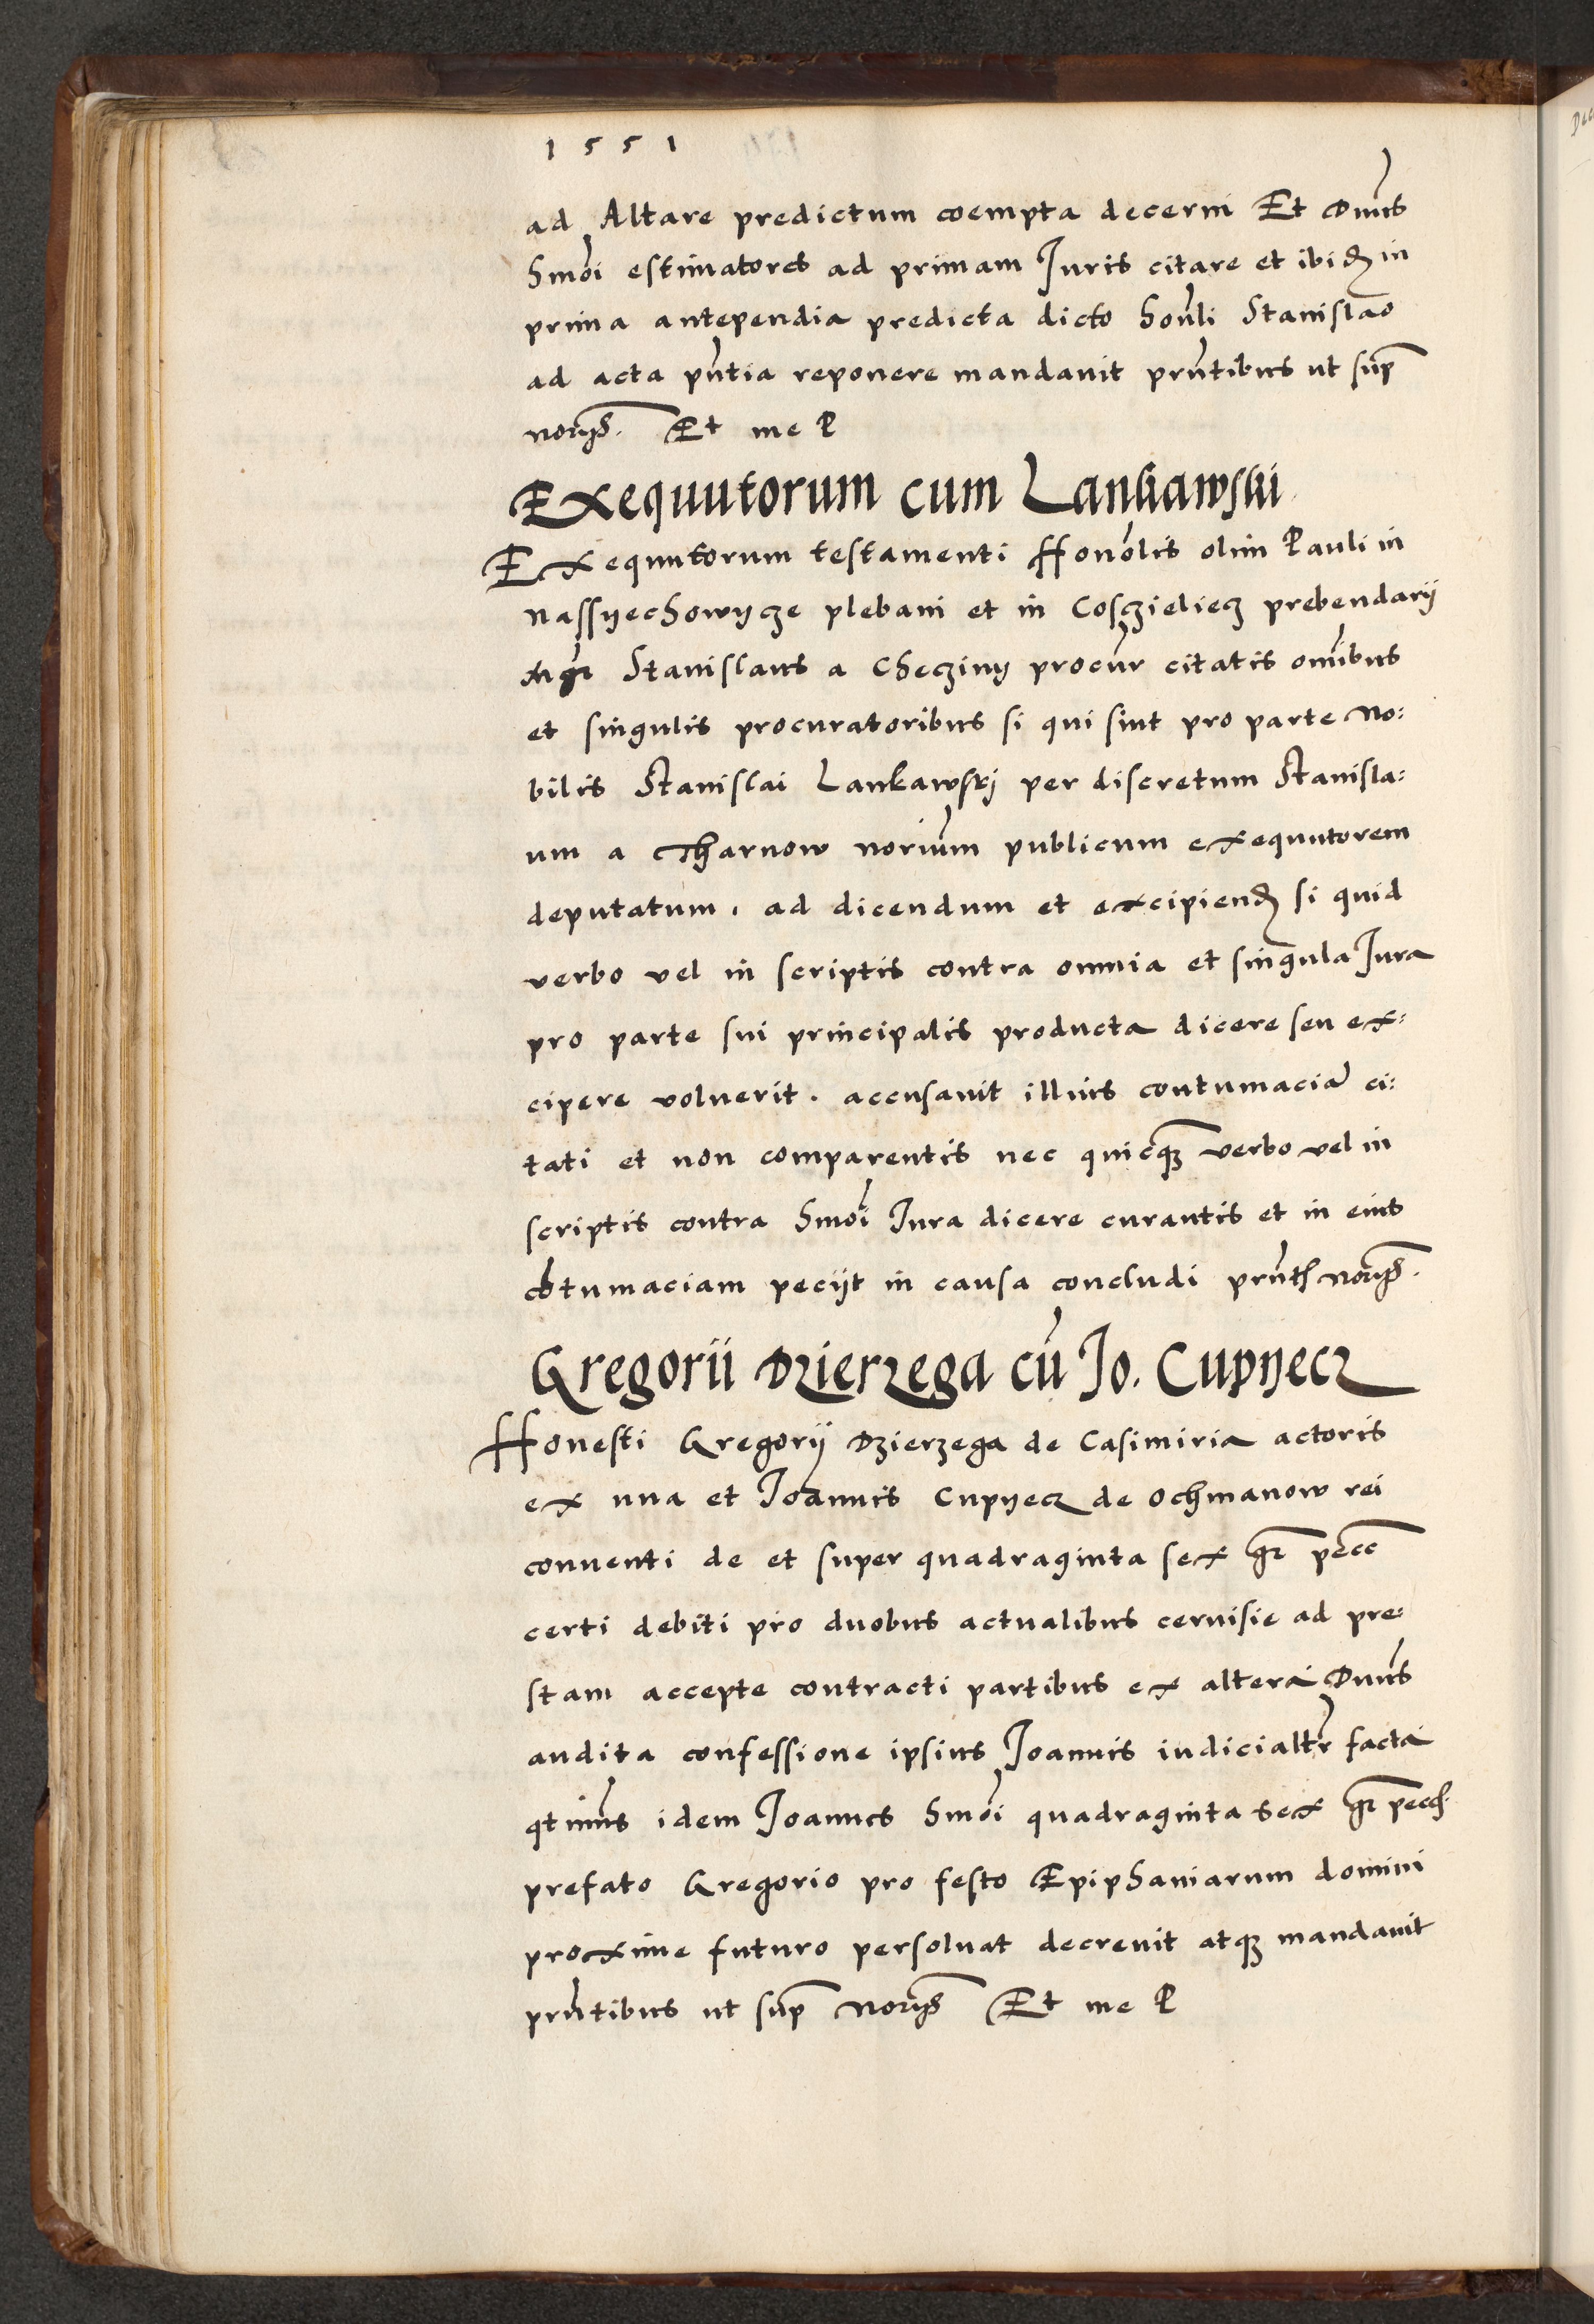 1551
ad Altare predictum coempta decerni Et Dnus
hmoi estimatores ad primam Juris citare et ibid in
prima antependia predicta dicto honli Stanislao
ad acta pntia reponere mandauit pntibus ut sup
norijs. Et me P
Exequutorum cum Lankawskii
Exequutorum testamenti Honolis olim Pauli in
Nassyechowycze plebani et in Cosczieliecz prebendarij
Mgr Stanislaus a Checziny procur citatis omibus
et singulis procuratoribus si qui sint pro parte No:
bilis Stanislai Lankawskj per discretum Stanisla:
um a Tharnow norium publicum exequutorem
deputatum. ad dicendum et excipiend si quid
verbo vel in scriptis contra omnia et singula Jura
pro parte sui principalis producta dicere seu ex:
cipere voluerit. accusauit illius contumacia ci:
tati et non comparentis nec quicqz verbo vel in
scriptis contra hmoi Jura dicere curantis et in eius
cotumaciam pecijt in causa concludi pntibs norijs.
Gregorii Dzierzega cu Jo. Cupyecz
Honesti Gregorij Dzierzega de Casimiria actoris
ex una et Joannis Cupyecz de Ochmanow rei
conuenti de et super quadraginta sex gr pecc
certi debiti pro duobus actualibus ceruisie ad pre:
stam accepte contracti partibus ex altera Dnus
audita confessione ipsius Joannis iudicialtr facta
qtinus idem Joannes hmoi quadraginta sex gr pecc
prefato Gregorio pro festo Epiphaniarum domini
proxime futuro persoluat decreuit atqz mandauit
pntibus ut sup norijs Et me P